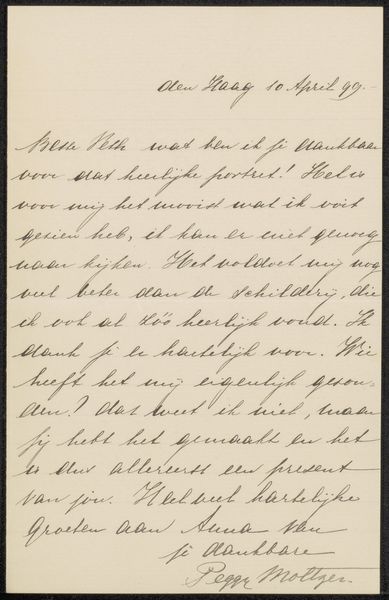 den Haag 10 April 99.
Beste Veth wat ben ik je dankbaar
voor dat heerlijke portret! Het is
voor mij het mooist wat ik ooit
gezien heb, ik kan er niet genoeg
naar kijken. Het voldoet mij nog
veel beter dan de schilderij, die
ik ook al zóó heerlijk vond. Ik
dank je er hartelijk voor. Wie
heeft het mij eigenlijk gezon-
den? dat weet ik niet, maar
jij hebt het gemaakt en het
is dus allereerst een present
van jou. Heel veel hartelijke
groeten aan Anna van
je dankbare
Peggy Moltzer.